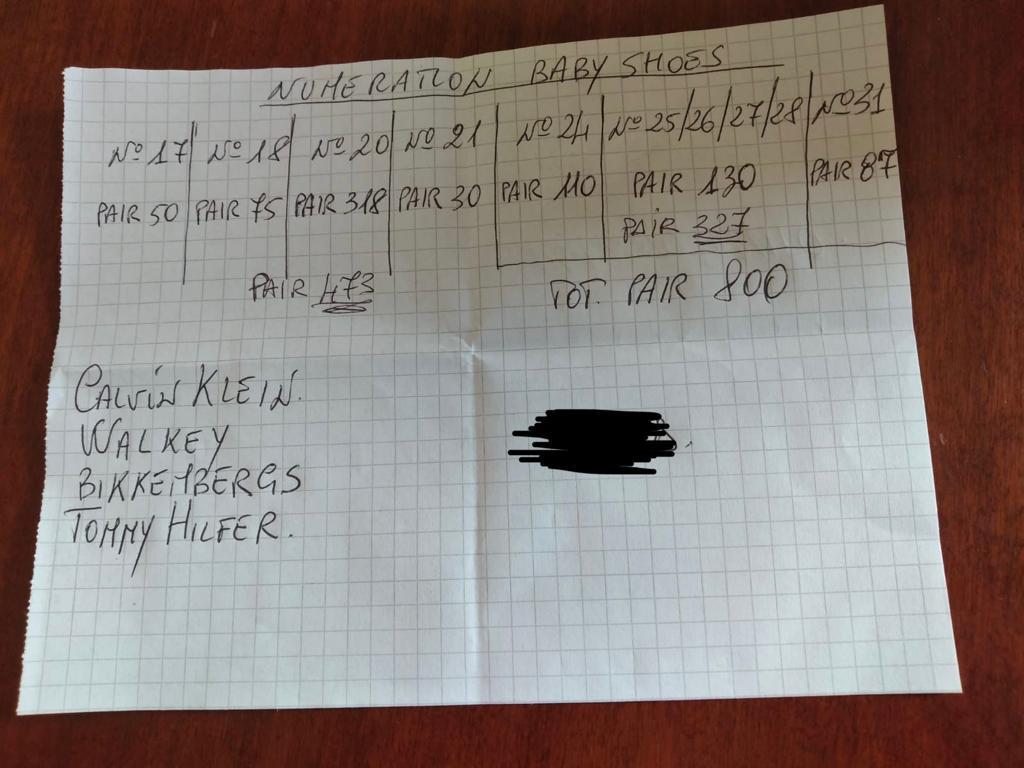 NUMERATION BABY SHOES
Nº 17 Nº 18 Nº 20 Nº 21 Nº 24 Nº 25/26/27/28 Nº 31
PAIR 50 PAIR 75 PAIR 318 PAIR 30 PAIR 110 PAIR 130 PAIR 87
PAIR 327
PAIR 473 TOT. PAIR 800
CALVIN KLEIN.
WALKEY
BIKKEMBERGS
TOMMY HILFER.